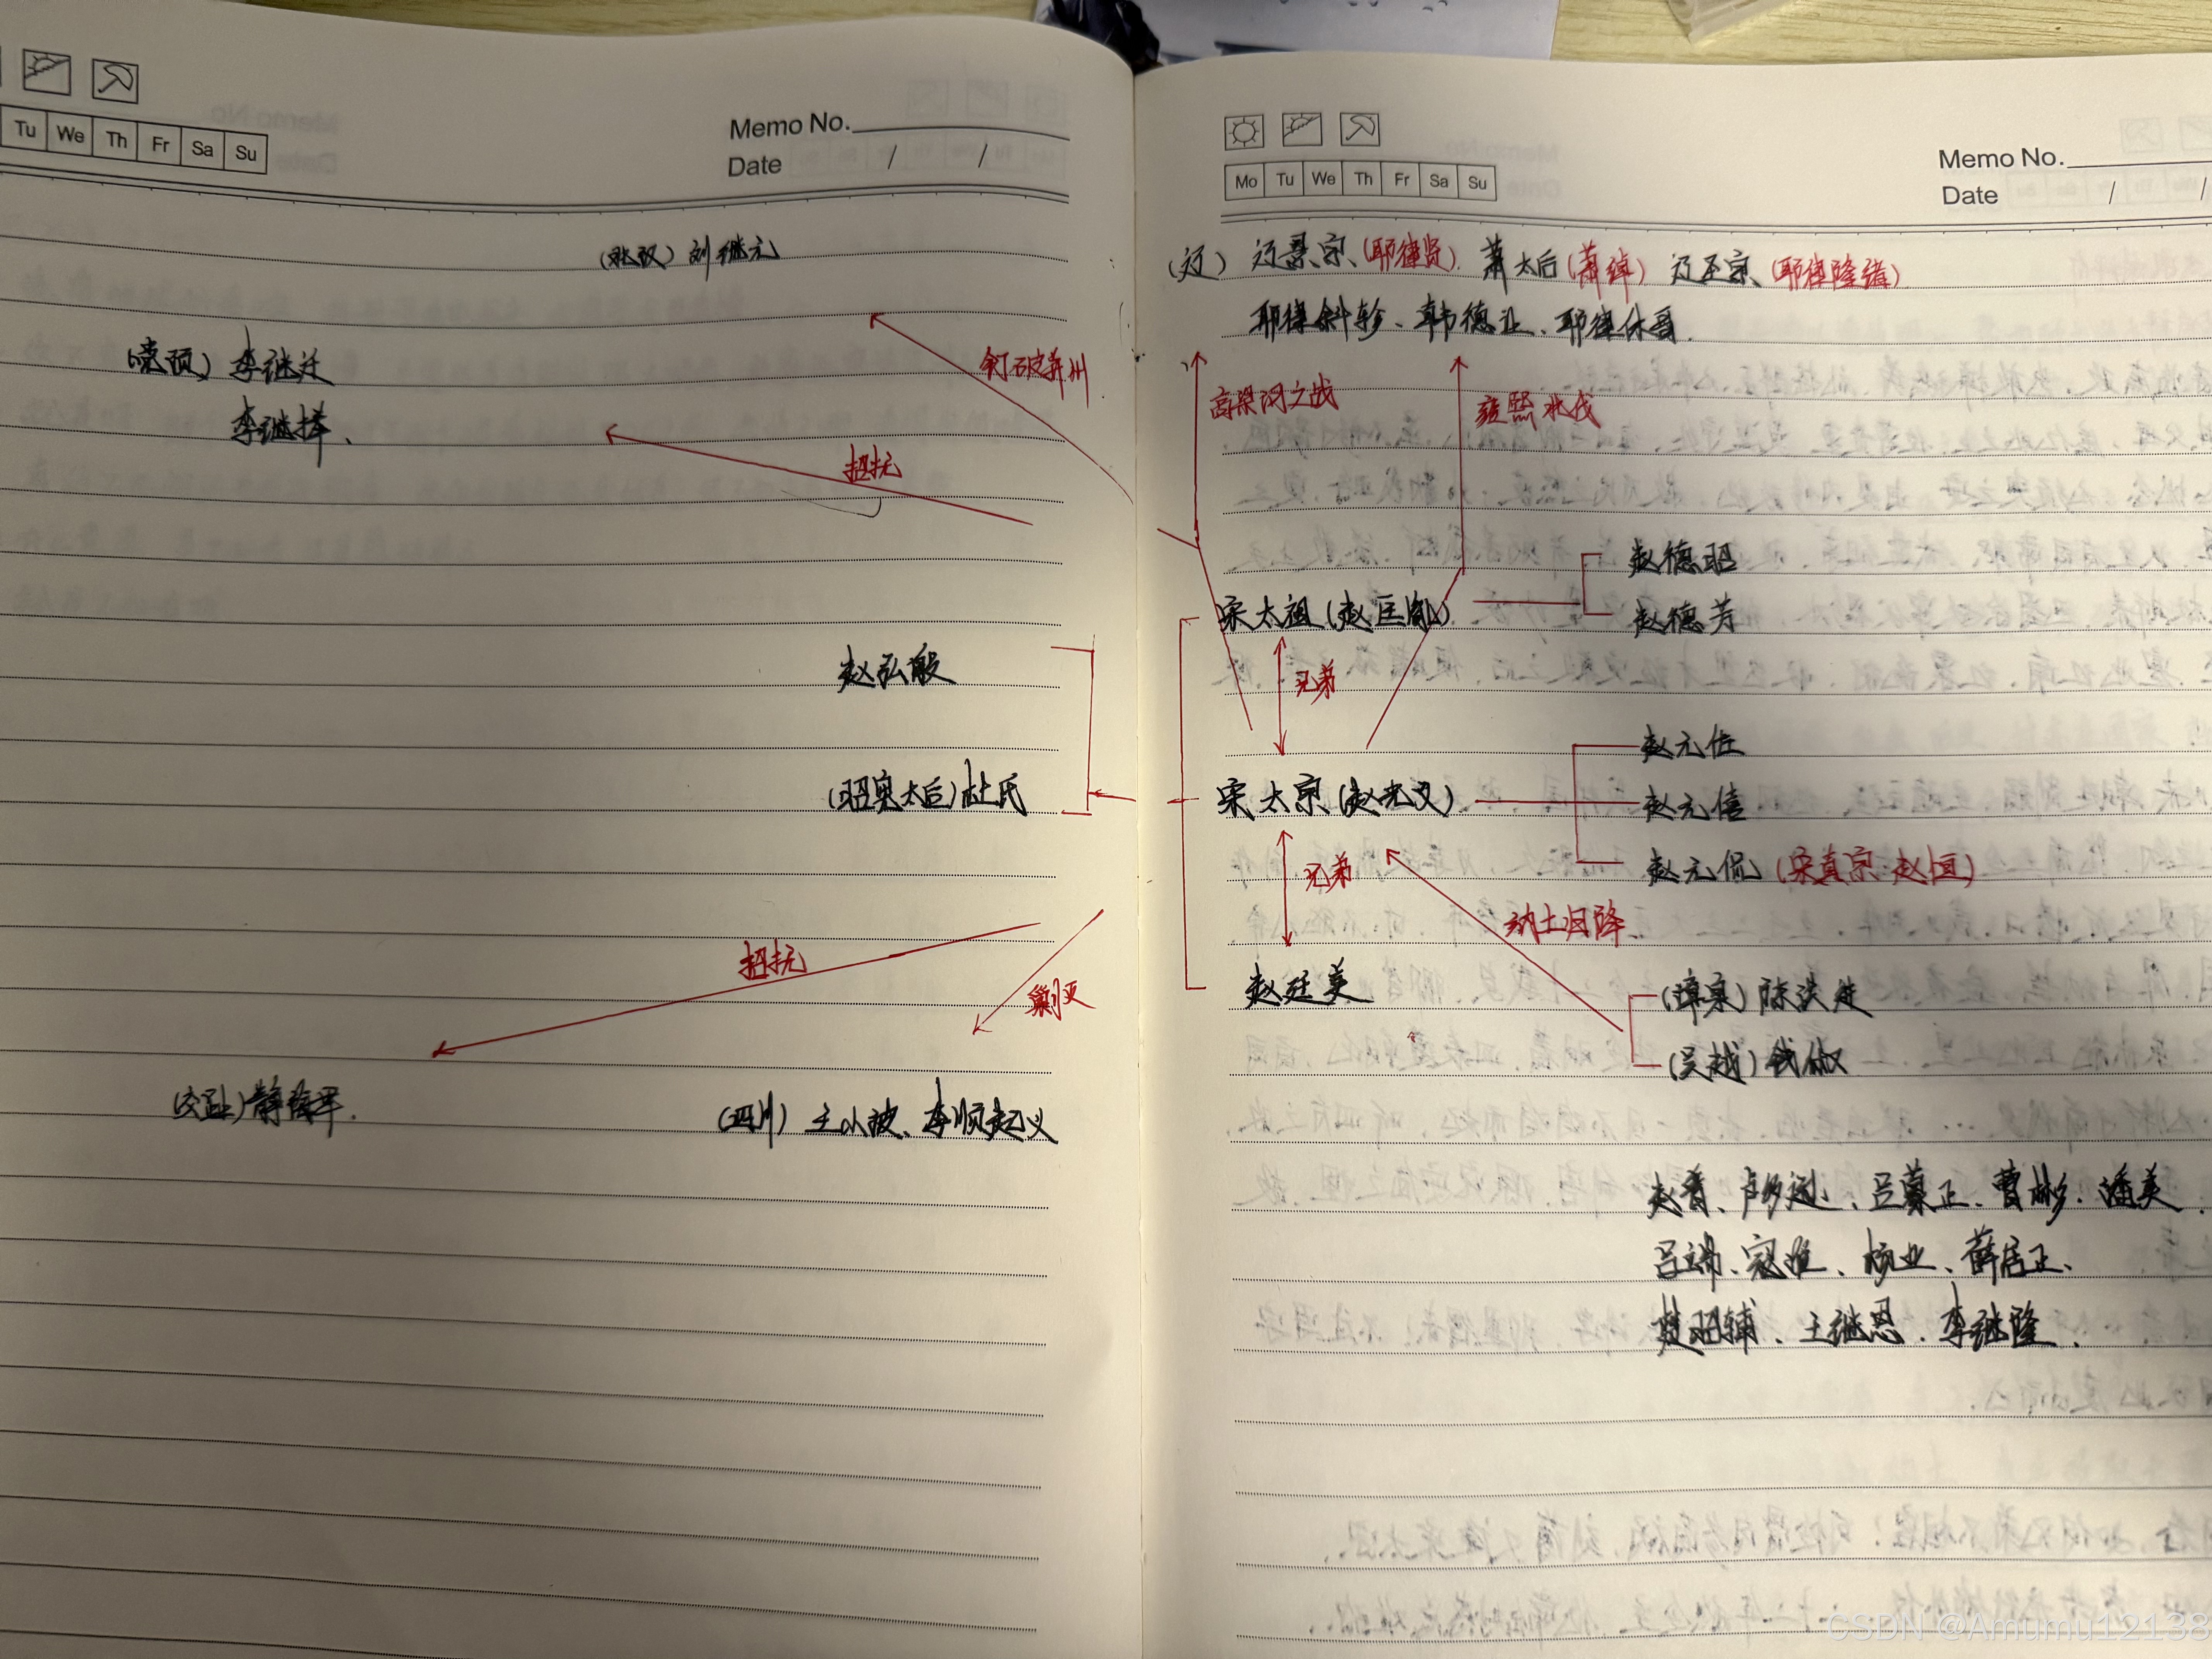 Tu We Th Fr Sa Su
Memo No.
Date / /
(北汉) 刘继元
(党项) 李继迁
李继捧、
钉破并州
招抚
赵弘殷
(昭宪太后) 杜氏
招抚
剿灭
(交趾) 静海军.
(四川) 王小波、李顺起义
Mo Tu We Th Fr Sa Su
Memo No.
Date / /
(辽) 辽景宗、(耶律贤). 萧太后 (萧绰) 辽圣宗、(耶律隆绪)
耶律斜轸、韩德让、耶律休哥.
高梁河之战
雍熙北伐
赵德昭
宋太祖 (赵匡胤)
赵德芳
兄弟
赵元佐
宋太宗 (赵光义)
赵元僖
赵元侃 (宋真宗 赵恒)
兄弟
纳土归降
赵廷美
(漳泉) 陈洪进
(吴越) 钱俶
赵普、卢多逊、吕蒙正、曹彬、潘美、
吕端、寇准、杨业、薛居正、
楚昭辅、王继恩、李继隆、
CSDN @Amumu12138